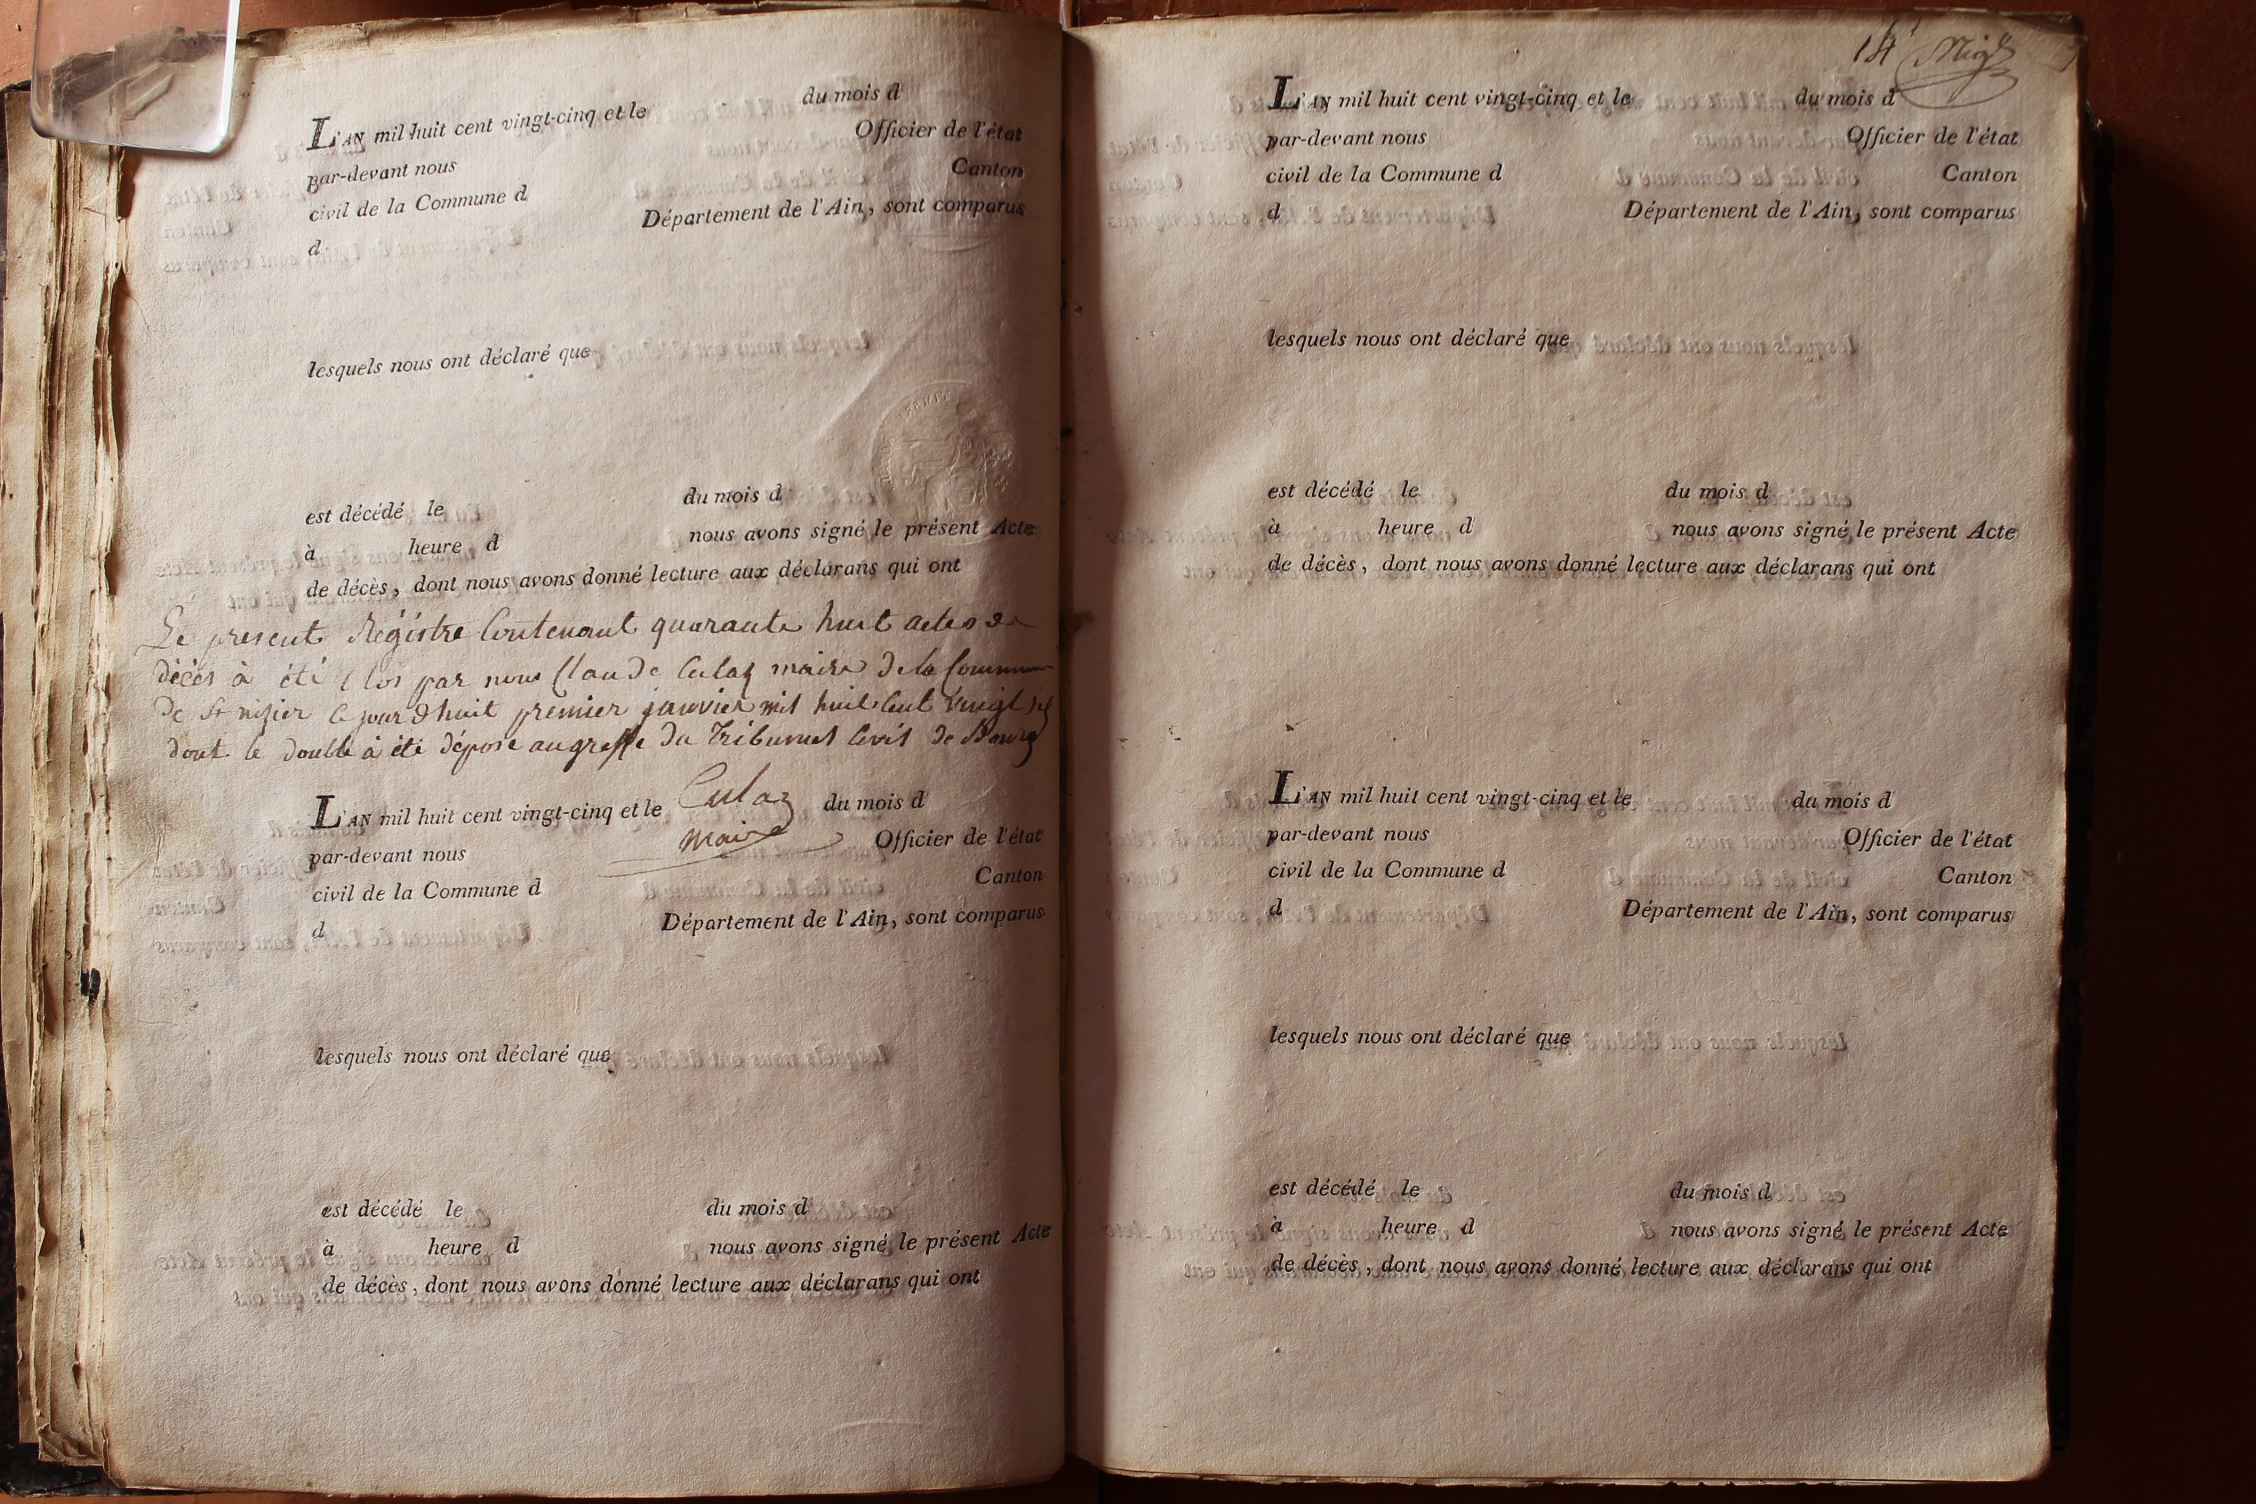 L'AN mil huit cent vingt-cinq et le du mois d
par-devant nous Officier de l'état
civil de la Commune d Canton
d Département de l'Ain, sont comparus
lesquels nous ont déclaré que
est décédé le du mois d
à heure d nous avons signé le présent Acte
de décès, dont nous avons donné lecture aux déclarans qui ont
Le present Régistre Contenant quarante huit actes de
décès à été Clos par nous Claude Culaz maire de la Commune
De St nizier ce jour d'huit premier janvier mil huit Cent vingt six
dont le double à été déposé au greffe du Tribunal Civil de Bourg
Culaz
maire
L'AN mil huit cent vingt-cinq et le du mois d
par-devant nous Officier de l'état
civil de la Commune d Canton
d Département de l'Ain, sont comparus
lesquels nous ont déclaré que
est décédé le du mois d
à heure d nous avons signé le présent Acte
de décès, dont nous avons donné lecture aux déclarans qui ont
14
L'AN mil huit cent vingt-cinq et le du mois d
par-devant nous Officier de l'état
civil de la Commune d Canton
d Département de l'Ain, sont comparus
lesquels nous ont déclaré que
est décédé le du mois d
à heure d nous avons signé le présent Acte
de décès, dont nous avons donné lecture aux déclarans qui ont
L'AN mil huit cent vingt-cinq et le du mois d
par-devant nous Officier de l'état
civil de la Commune d Canton
d Département de l'Ain, sont comparus
lesquels nous ont déclaré que
est décédé le du mois d
à heure d nous avons signé le présent Acte
de décès, dont nous avons donné lecture aux déclarans qui ont